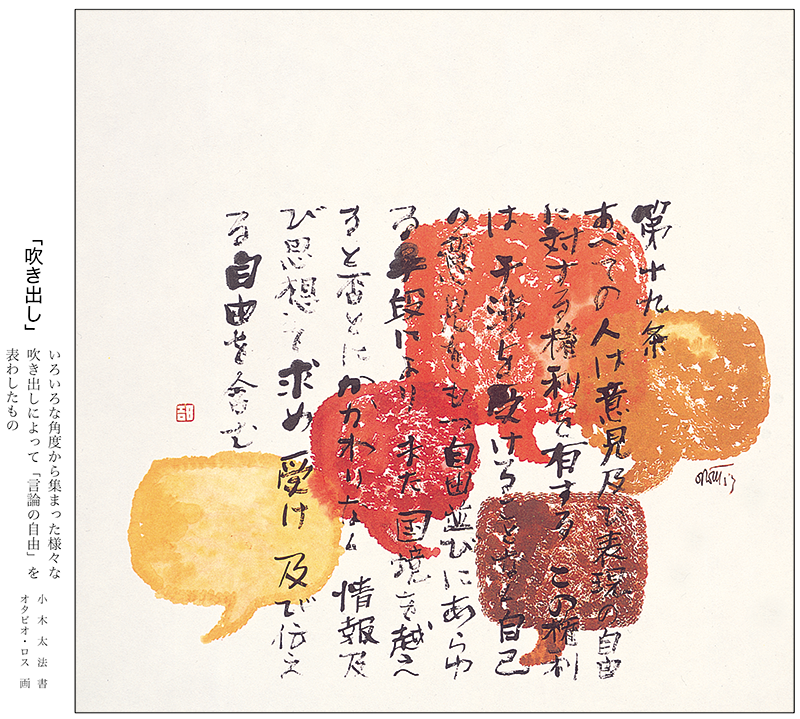 第十九条
すべての人は意見及び表現の自由
に対する権利を有する この権利
は 干渉を受けることなく自己
の意見をもつ自由並びにあらゆ
る手段により また 国境を越え
ると否とにかかわりなく 情報及
び思想を求め 受け 及び伝え
る自由を含む
「吹き出し」
いろいろな角度から集まった様々な
吹き出しによって「言論の自由」を
表わしたもの
小木太法 書
オタビオ・ロス 画